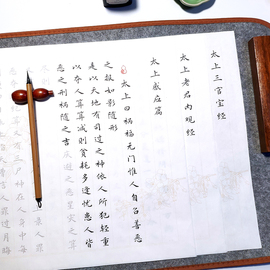 太上三官宝经
太上老君内观经
太上感应篇
太上曰祸福无门惟人自召善恶
之报如影随形
是以天地有司过之神依人所犯轻重
以夺人算算减则贫耗多逢忧患人皆
恶之刑祸随之吉庆避之恶星灾之算